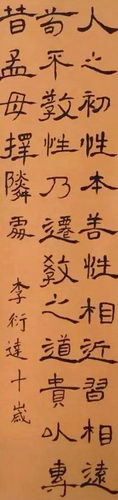 人之初性本善性相近習相遠
苟不教性乃遷教之道貴以專
昔孟母擇隣處
李衍達十歲